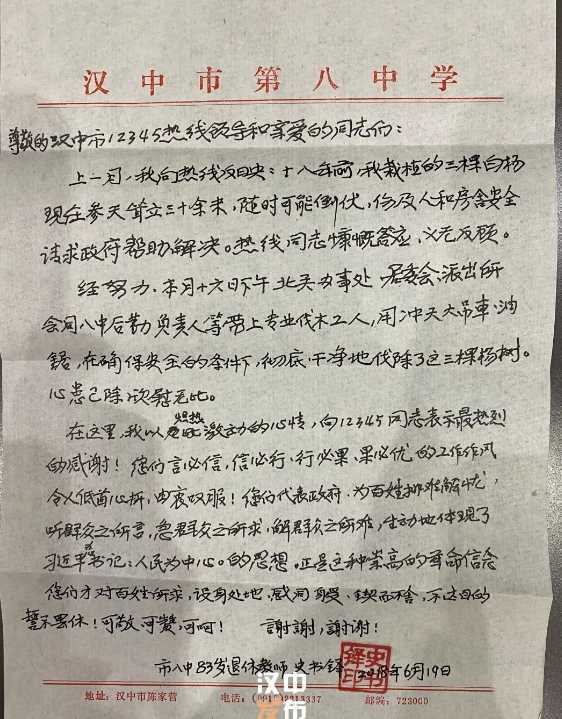 汉中市第八中学
尊敬的汉中市12345热线领导和亲爱的同志们：
上一周，我向热线反映：十八年前，我栽植的三棵白杨
现在参天耸立三十余米，随时可能倒伏，伤及人和房舍安全
请求政府帮助解决。热线同志慷慨答应，义无反顾。
经努力，本月十六日下午北关办事处、居委会、派出所
会同八中后勤负责人等带上专业伐木工人，用冲天大吊車、油
锯，在确保安全的条件下，彻底、干净地伐除了这三棵杨树。
心患已除，欣慰无比。
在这里，我以炽热激动的心情，向12345同志表示最热烈
的感谢！您们言必信，信必行，行必果，果必优的工作作风
令人低首心折，由衷叹服！您们代表政府，为百姓排难解忧，
听群众之所言，急群众之所求，解群众之所难，生动地体现了
习近平书记：人民为中心。的思想。正是这种崇高的革命信念
您们才对百姓所求，设身处地，感同身受，锲而不舍，不达目的
誓不罢休！可敬，可赞，可呵！ 謝謝，謝谢！
市八中83岁退休教师 史书铎 2018年6月19日
地址：汉中市陈家营 电话：(0916)2213337 邮编：723000
汉中
发布